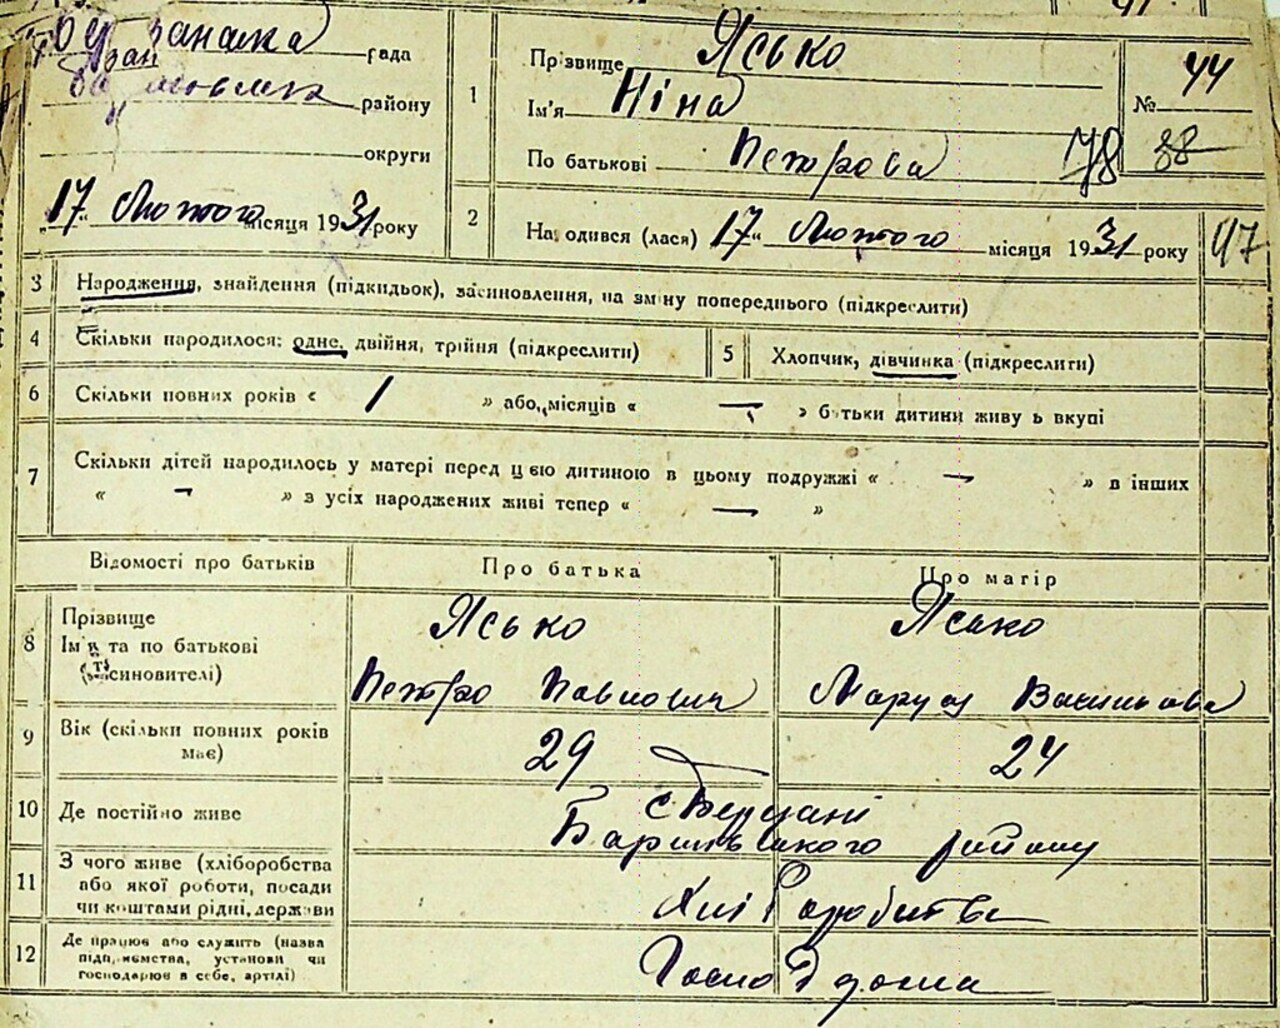 рада
району
округи
17 Лютого місяця 1931 року
1
Прізвище Ясько
Ім'я Ніна
По батькові Петрова
№ 44
78 88
2
На одився (лася) 17 Лютого місяця 1931 року
47
3 Народження, знайдення (підкидьок), засиновлення, на зміну попереднього (підкреслити)
4 Скільки народилося: одне, двійня, трійня (підкреслити)
5 Хлопчик, дівчинка (підкреслити)
6 Скільки повних років « 1 » або „місяців « — » батьки дитини живу ь вкупі
7 Скільки дітей народилось у матері перед цією дитиною в цьому подружжі « — » в інших
« — » з усіх народжених живі тепер « — »
Відомості про батьків
Про батька
Про матір
8 Прізвище
Ім'я та по батькові
синовителі)
Ясько
Петро Павлович
Ясько
Маруся Васильова
9 Вік (скільки повних років
має)
29
24
10 Де постійно живе
с
Баришівського району
11 З чого живе (хліборобства
або якої роботи, посади
чи коштами рідні, держави
Хліборобства
12 Де працює або служить (назва
підприємства, установи чи
господарює в себе, артілі)